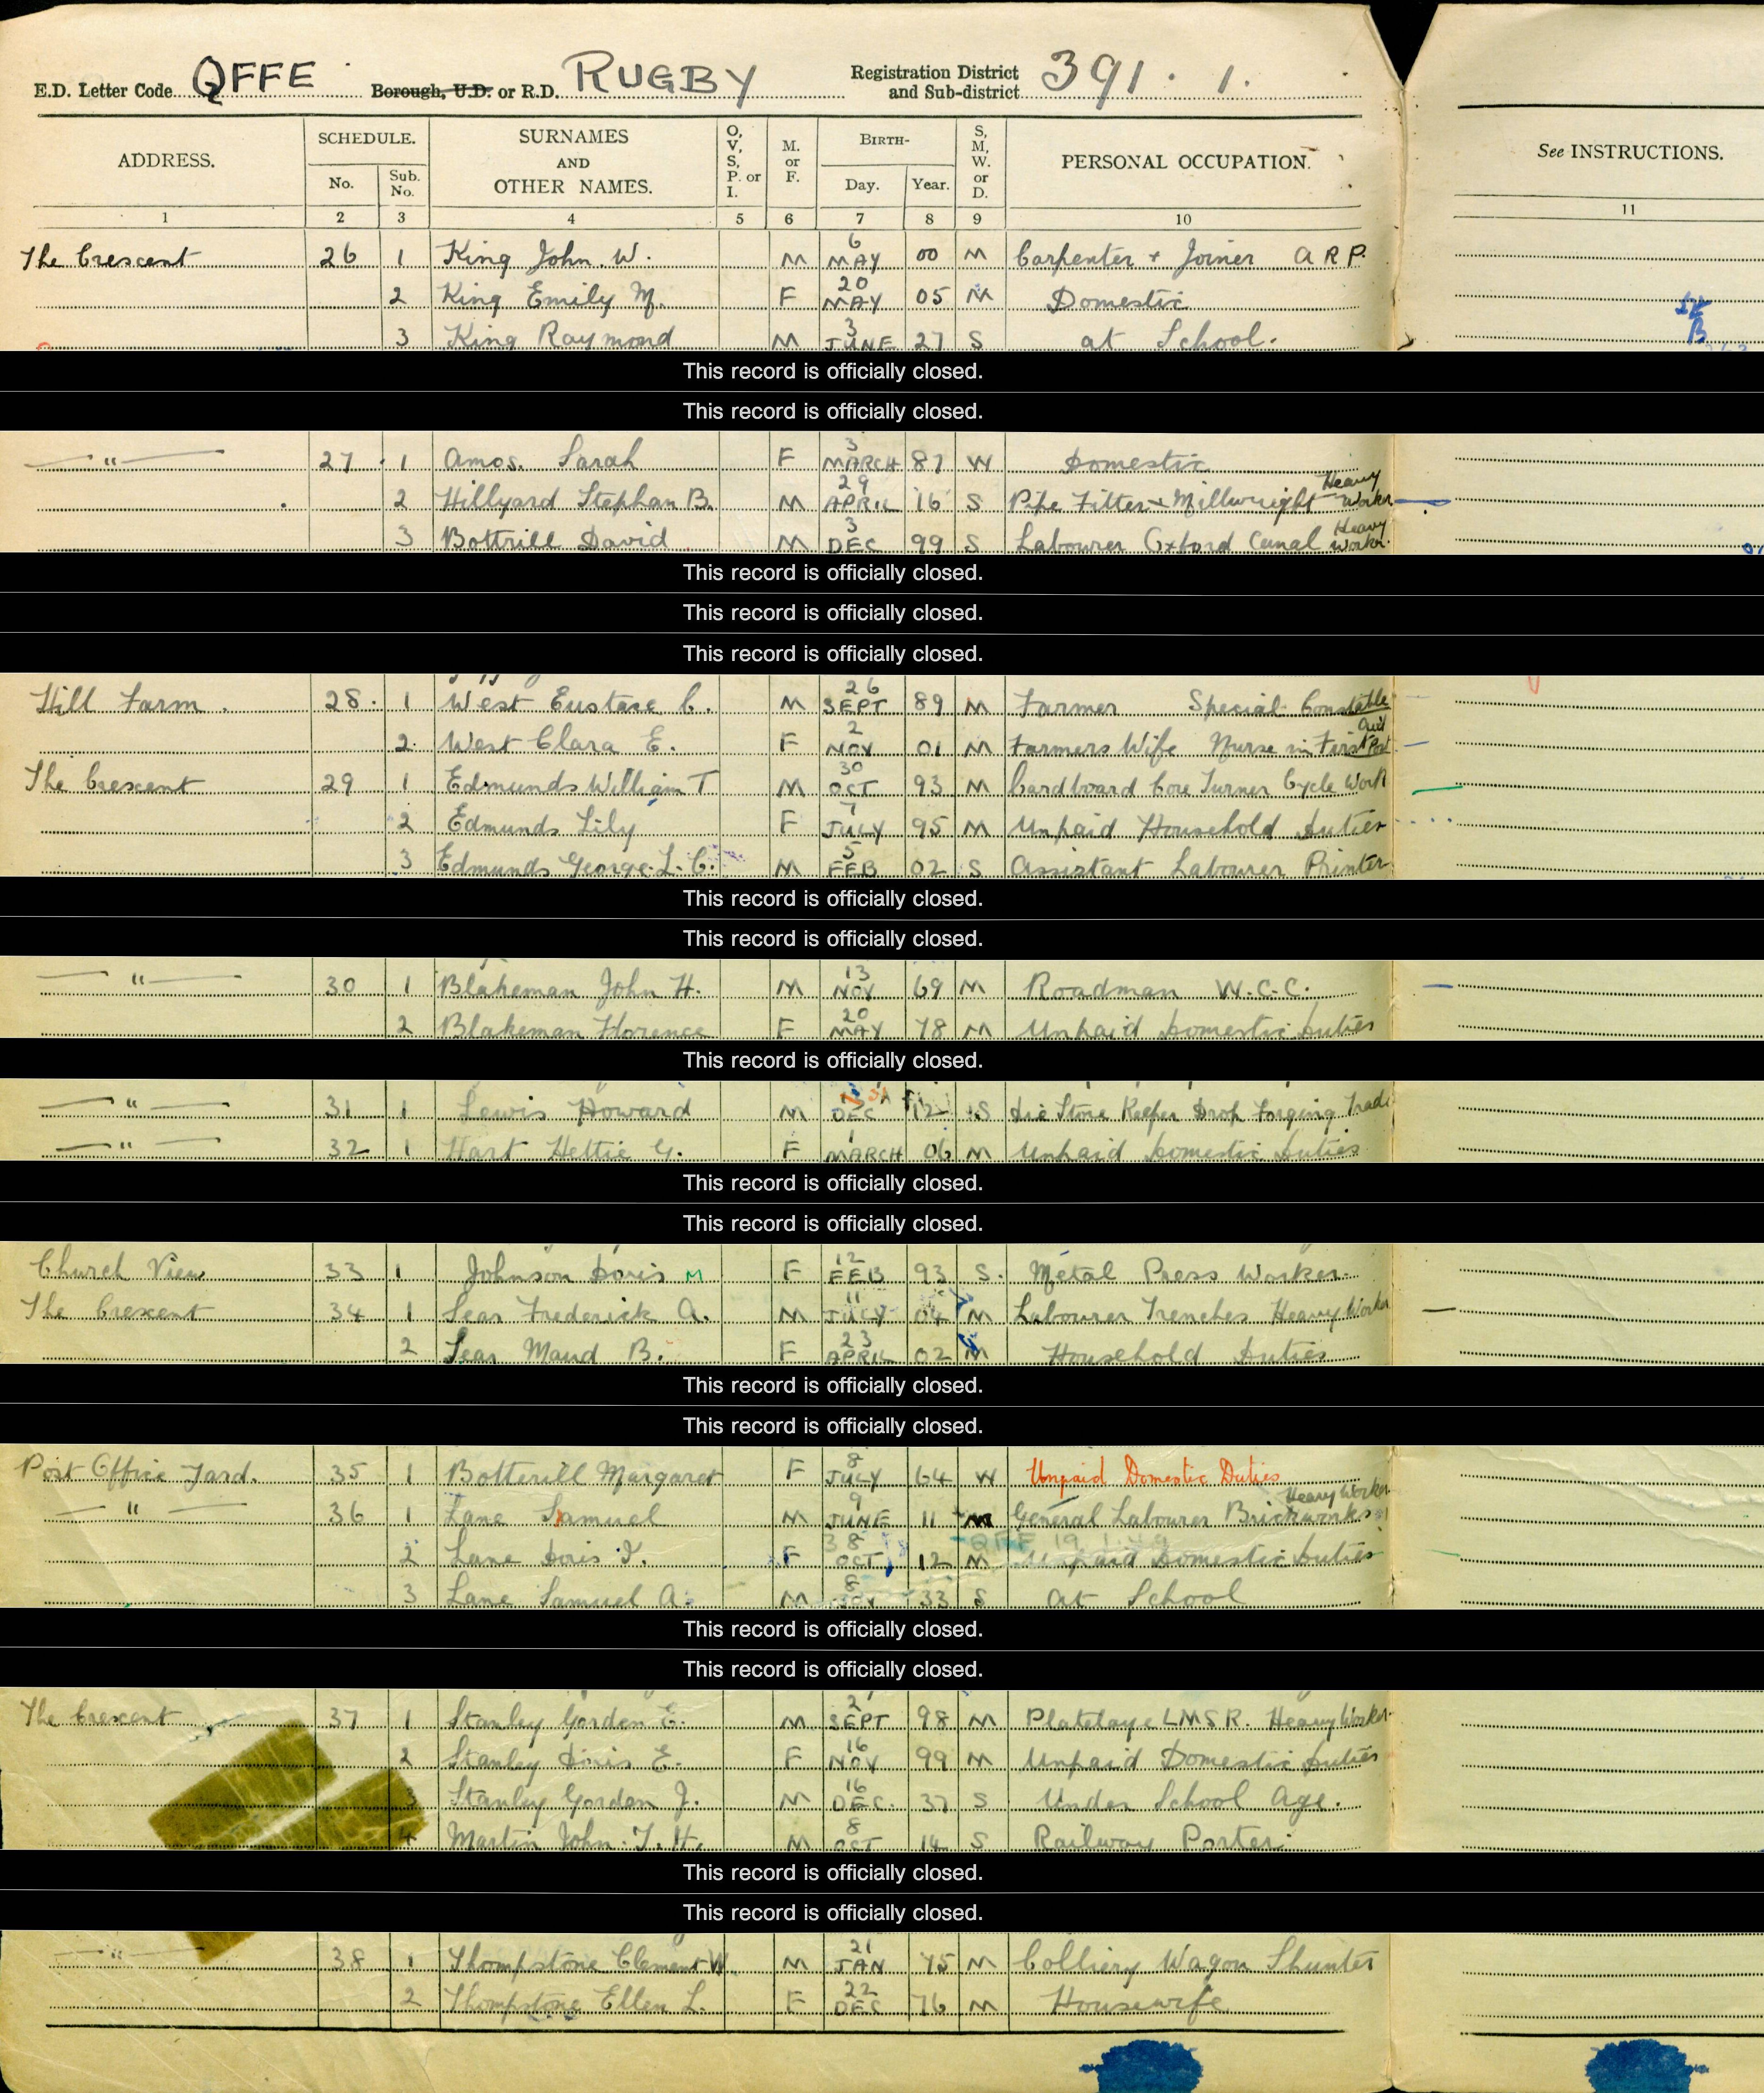 E.D. Letter Code QFFE Borough, U.D. or R.D. RUGBY Registration District and Sub-district 391. 1.
ADDRESS. SCHEDULE. No. Sub. No. SURNAMES AND OTHER NAMES. O, V, S, P. or I. M. or F. BIRTH- Day. Year. S, M, W. or D. PERSONAL OCCUPATION. See INSTRUCTIONS.
1 2 3 4 5 6 7 8 9 10 11
The Crescent 26 1 King John. W. M 6 MAY 00 M Carpenter + Joiner A R P.
2 King Emily M. F 20 MAY 05 M Domestic
3 King Raymond M 3 JUNE 27 S at School.
This record is officially closed.
This record is officially closed.
" 27 1 Amos. Sarah F 3 MARCH 87 W Domestic
2 Hillyard Stephan B. M 29 APRIL 16 S Pipe Fitter + Millwright Heavy Worker
3 Bottrill David M 3 DEC 99 S Labourer Oxford Canal Heavy Worker.
This record is officially closed.
This record is officially closed.
This record is officially closed.
Hill Farm. 28. 1 West Eustace C. M 26 SEPT 89 M Farmer Special Constable
2. West Clara E. F 2 NOV 01 M Farmers Wife Nurse in First Aid Post
The Crescent 29 1 Edmunds William T M 30 OCT 93 M Cardboard Core Turner Cycle Work
2 Edmunds Lily F 7 JULY 95 M Unpaid Household Duties
3 Edmunds George. L. C. M 5 FEB 02 S Assistant Labourer Printer
This record is officially closed.
This record is officially closed.
" 30 1 Blakeman John H. M 13 NOV 69 M Roadman W.C.C.
2 Blakeman Florence F 20 MAY 78 M Unpaid Domestic Duties
This record is officially closed.
" 31 1 Lewis Howard M DEC 12 S Die Store Keeper Drop Forging Trade
" 32 1 Hart Hettie G. F 1 MARCH 06 M Unpaid Domestic Duties
This record is officially closed.
This record is officially closed.
Church View 33 1 Johnson Doris M F 12 FEB 93 S. Metal Press Worker.
The Crescent 34 1 Sear Frederick A. M 11 JULY 04 M Labourer Trenches Heavy Worker
2 Sear Maud B. F 23 APRIL 02 M Household Duties
This record is officially closed.
This record is officially closed.
Post Office Yard. 35 1 Botterill Margaret F 8 JULY 64 W Unpaid Domestic Duties
" 36 1 Lane Samuel M 9 JUNE 11 M General Labourer Brickworks Heavy Worker
2 Lane Doris I. F 8 OCT 12 M Unpaid Domestic Duties
3 Lane Samuel A. M 8 33 S at School
This record is officially closed.
This record is officially closed.
The Crescent 37 1 Stanley Gordon E. M 2 SEPT 98 M Platelaye LMSR. Heavy Worker
2 Stanley Doris E. F 16 NOV 99 M Unpaid Domestic Duties
3 Stanley Gordon J. M 16 DEC. 37 S Under School Age.
4 Martin John. T. H. M 8 OCT 14 S Railway Porter.
This record is officially closed.
This record is officially closed.
" 38 1 Thompstone Clement W. M 21 JAN 75 M Colliery Wagon Shunter
2 Thompstone Ellen L. F 22 DEC 76 M Housewife